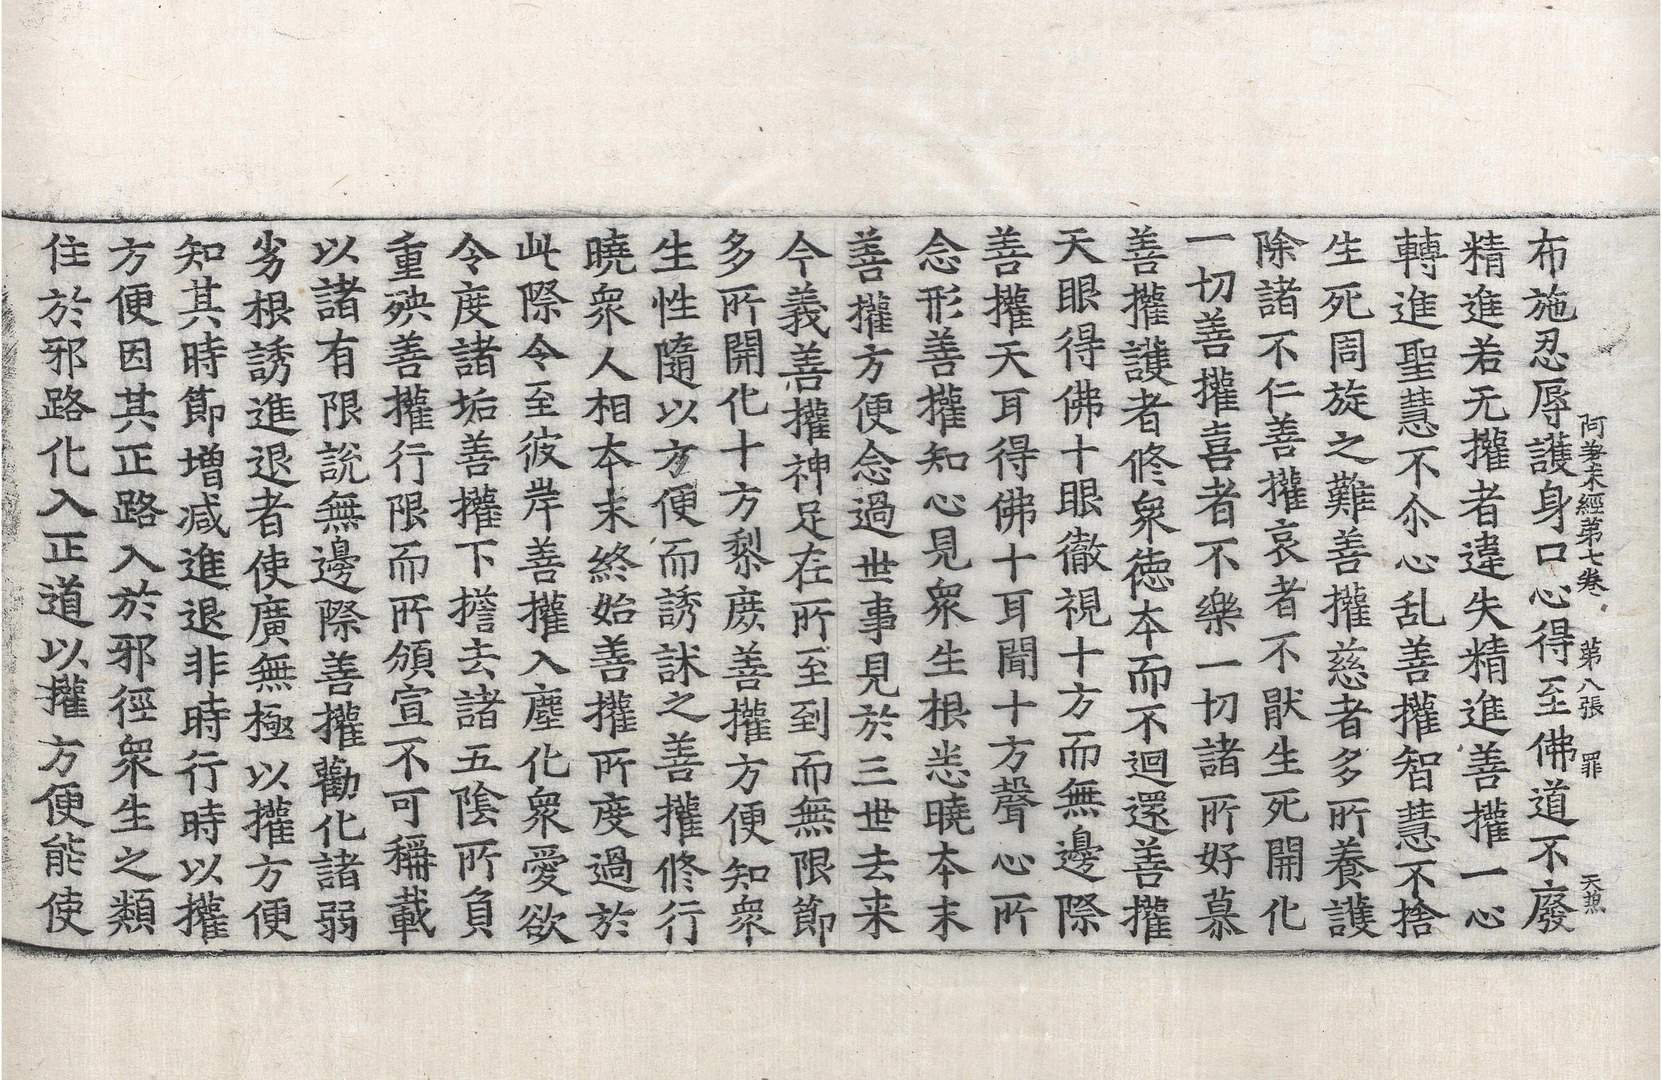 阿差末經第七卷 第八張 罪 天無
布施忍辱護身口心得至佛道不廢
精進若无權者違失精進善權一心
轉進聖慧不尒心乱善權智慧不捨
生死周旋之難善權慈者多所養護
除諸不仁善權哀者不猒生死開化
一切善權喜者不樂一切諸所好慕
善權護者修衆徳本而不迴還善權
天眼得佛十眼徹視十方而無邊際
善權天耳得佛十耳聞十方聲心所
念形善權知心見衆生根悉曉本末
善權方便念過世事見於三世去来
今義善權神足在所至到而無限節
多所開化十方黎庶善權方便知衆
生性隨以方便而誘訹之善權修行
曉衆人相本末終始善權所度過於
此際令至彼岸善權入塵化衆愛欲
令度諸垢善權下擔去諸五陰所負
重殃善權行限而所頒宣不可稱載
以諸有限說無邊際善權勸化諸弱
劣根誘進退者使廣無極以權方便
知其時節增减進退非時行時以權
方便因其正路入於邪徑衆生之類
住於邪路化入正道以權方便能使